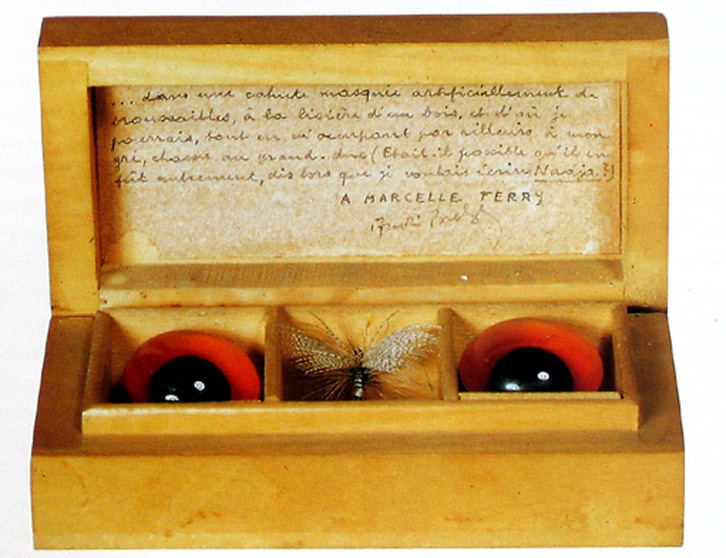 ... dans une cahute masquée artificiellement de
broussailles, à la lisière d'un bois, et d'où je
pourrais, tout en m'occupant par ailleurs à mon
gré, chasser au grand-duc (Était-il possible qu'il en
fût autrement, dès lors que je voulais écrire Nadja?)
A MARCELLE FERRY
André Breton